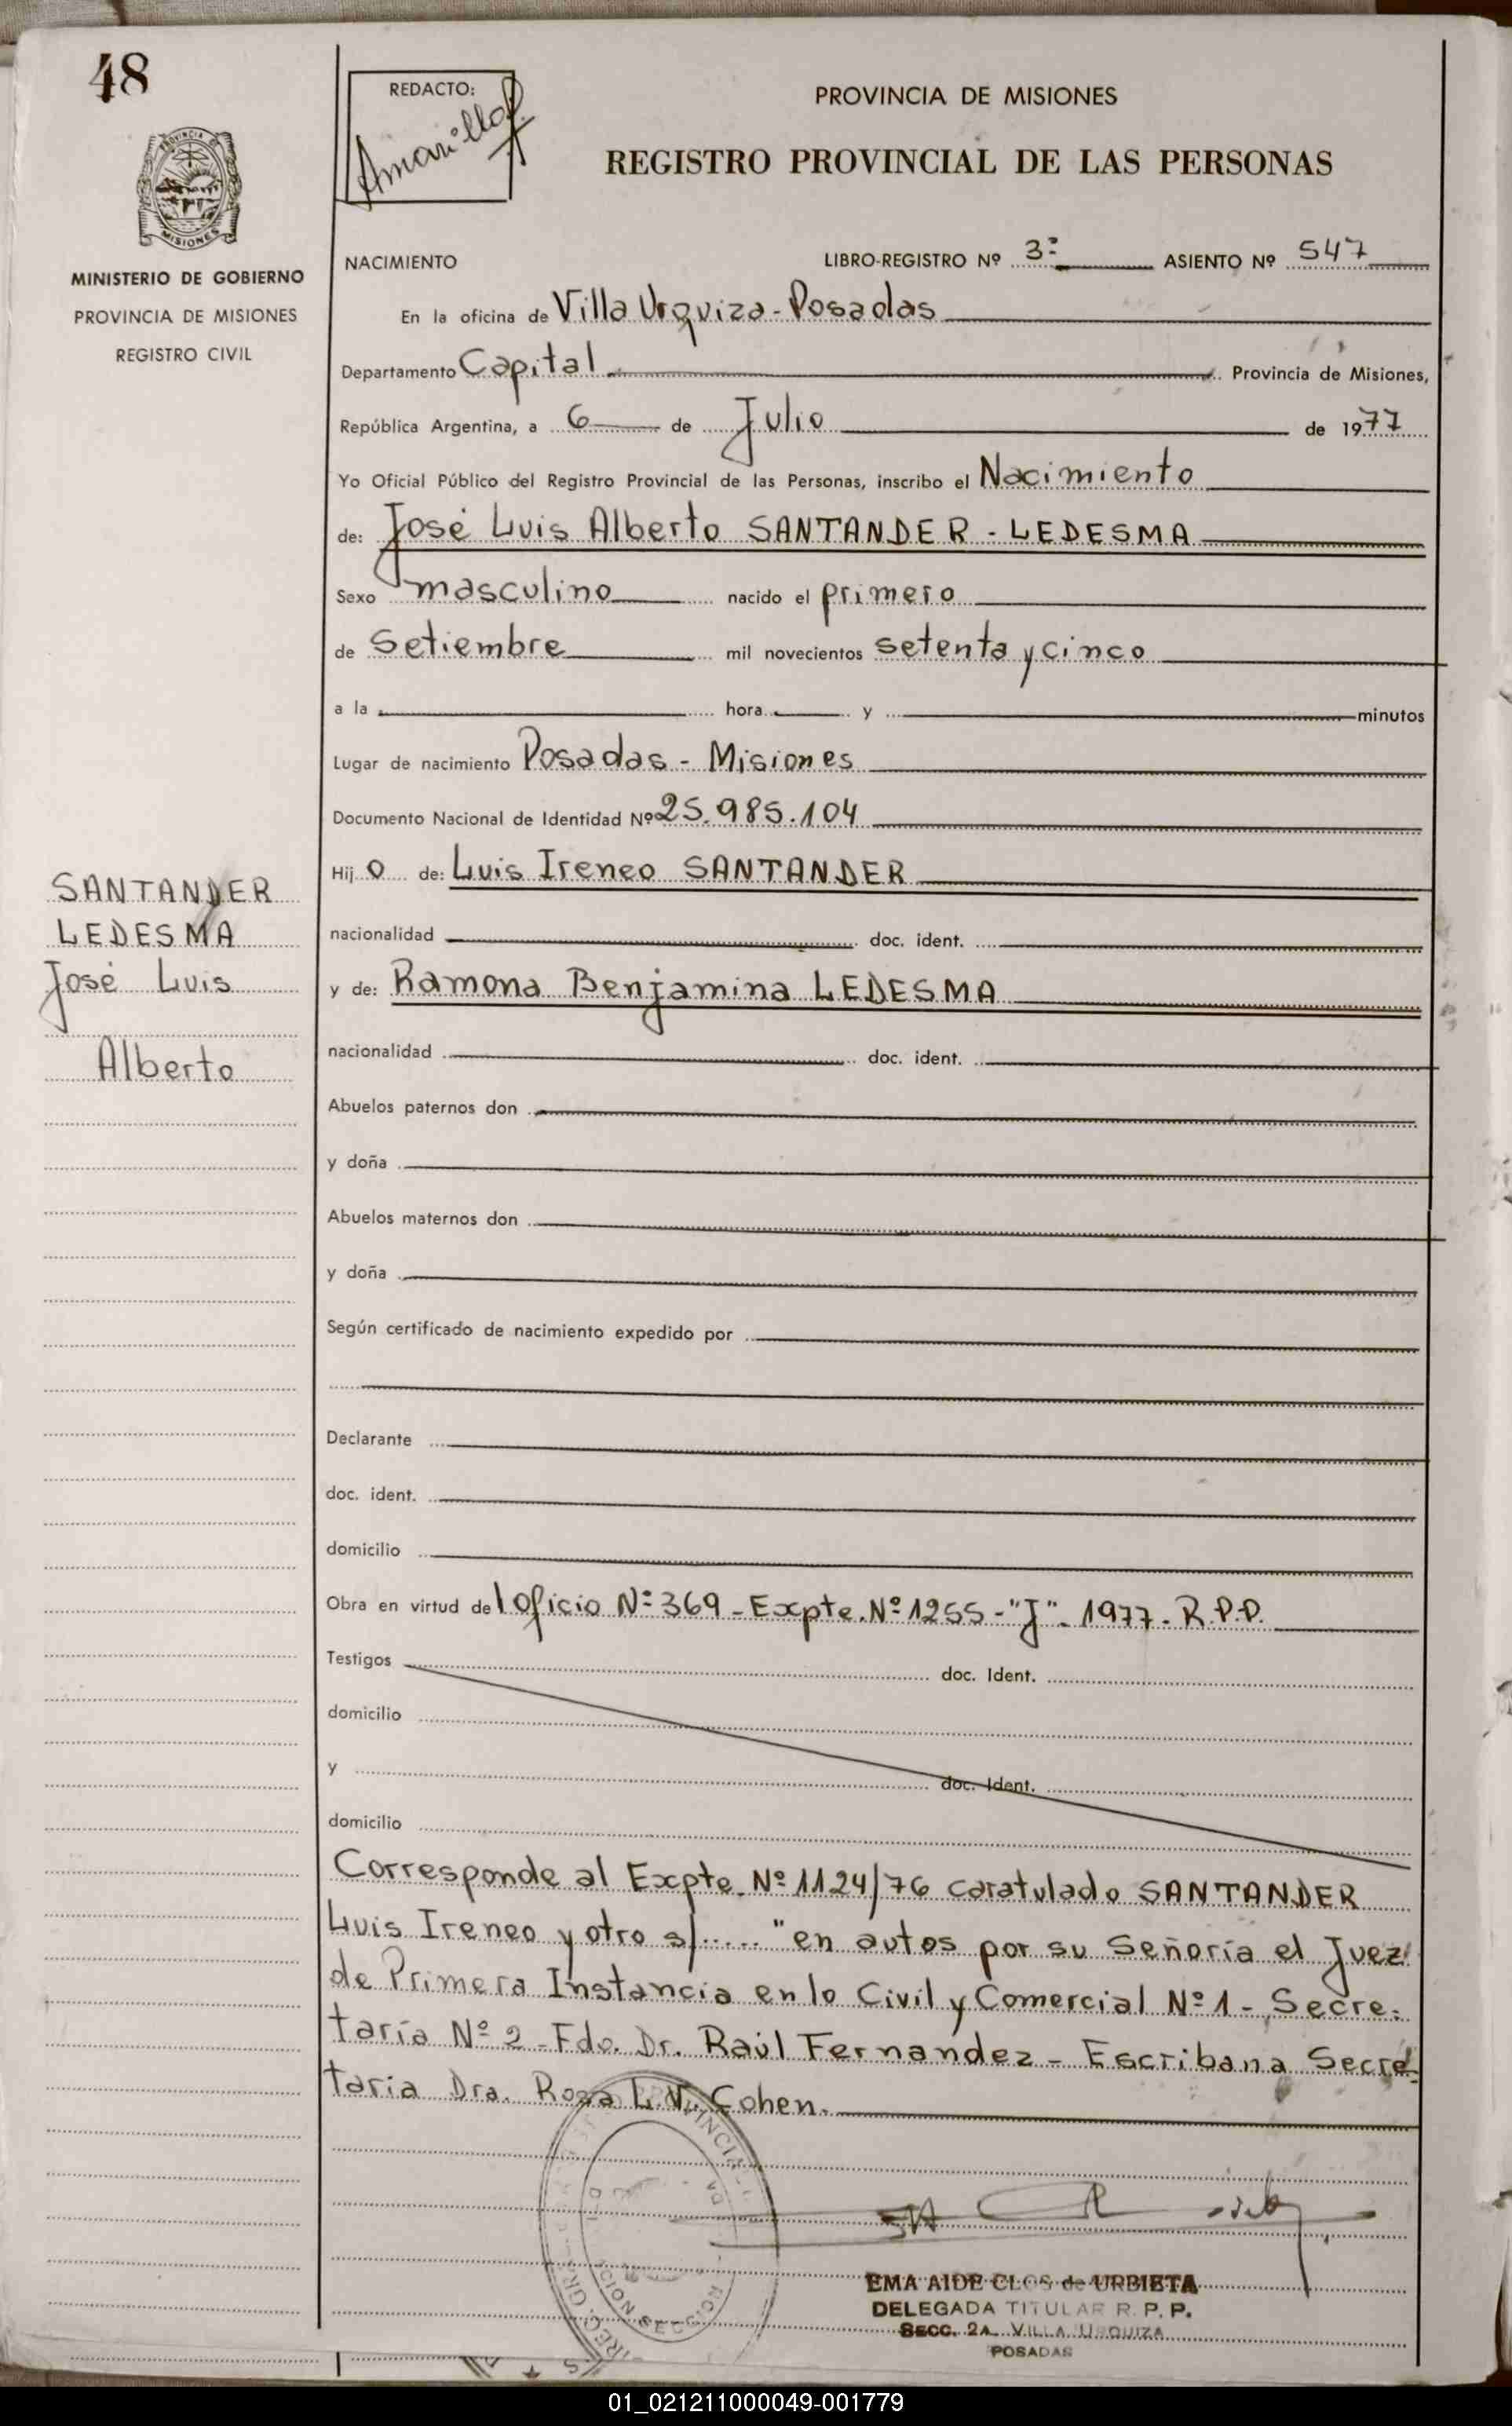 48
REDACTO:
Amarilla
PROVINCIA DE MISIONES
REGISTRO PROVINCIAL DE LAS PERSONAS
PROVINCIA
MISIONES
MINISTERIO DE GOBIERNO
PROVINCIA DE MISIONES
REGISTRO CIVIL
NACIMIENTO LIBRO-REGISTRO Nº 3º ASIENTO Nº 547
En la oficina de Villa Urquiza - Posadas
Departamento Capital Provincia de Misiones,
República Argentina, a 6 de Julio de 1977
Yo Oficial Público del Registro Provincial de las Personas, inscribo el Nacimiento
de: José Luis Alberto SANTANDER - LEDESMA
Sexo masculino nacido el primero
de Setiembre mil novecientos setenta y cinco
a la hora y minutos
Lugar de nacimiento Posadas - Misiones
Documento Nacional de Identidad Nº 25.985.104
Hijo de: Luis Ireneo SANTANDER
nacionalidad doc. ident.
y de: Ramona Benjamina LEDESMA
nacionalidad doc. ident.
SANTANDER
LEDESMA
José Luis
Alberto
Abuelos paternos don
y doña
Abuelos maternos don
y doña
Según certificado de nacimiento expedido por
Declarante
doc. ident.
domicilio
Obra en virtud del Oficio Nº 369 - Expte. Nº 1255 - "J" - 1977 - R.P.P.
Testigos doc. Ident.
domicilio
y doc. Ident.
domicilio
Corresponde al Expte. Nº 1124/76 caratulado SANTANDER
Luis Ireneo y otro s/..... " en autos por su Señoría el Juez
de Primera Instancia en lo Civil y Comercial Nº 1 - Secre-
taría Nº 2 - Fdo. Dr. Raúl Fernandez - Escribana Secre-
taria Dra. Rosa L. V. Cohen.
EMA AIDE CLOS de URBIETA
DELEGADA TITULAR R. P. P.
SECC. 2A. VILLA URQUIZA
POSADAS
01_021211000049-001779